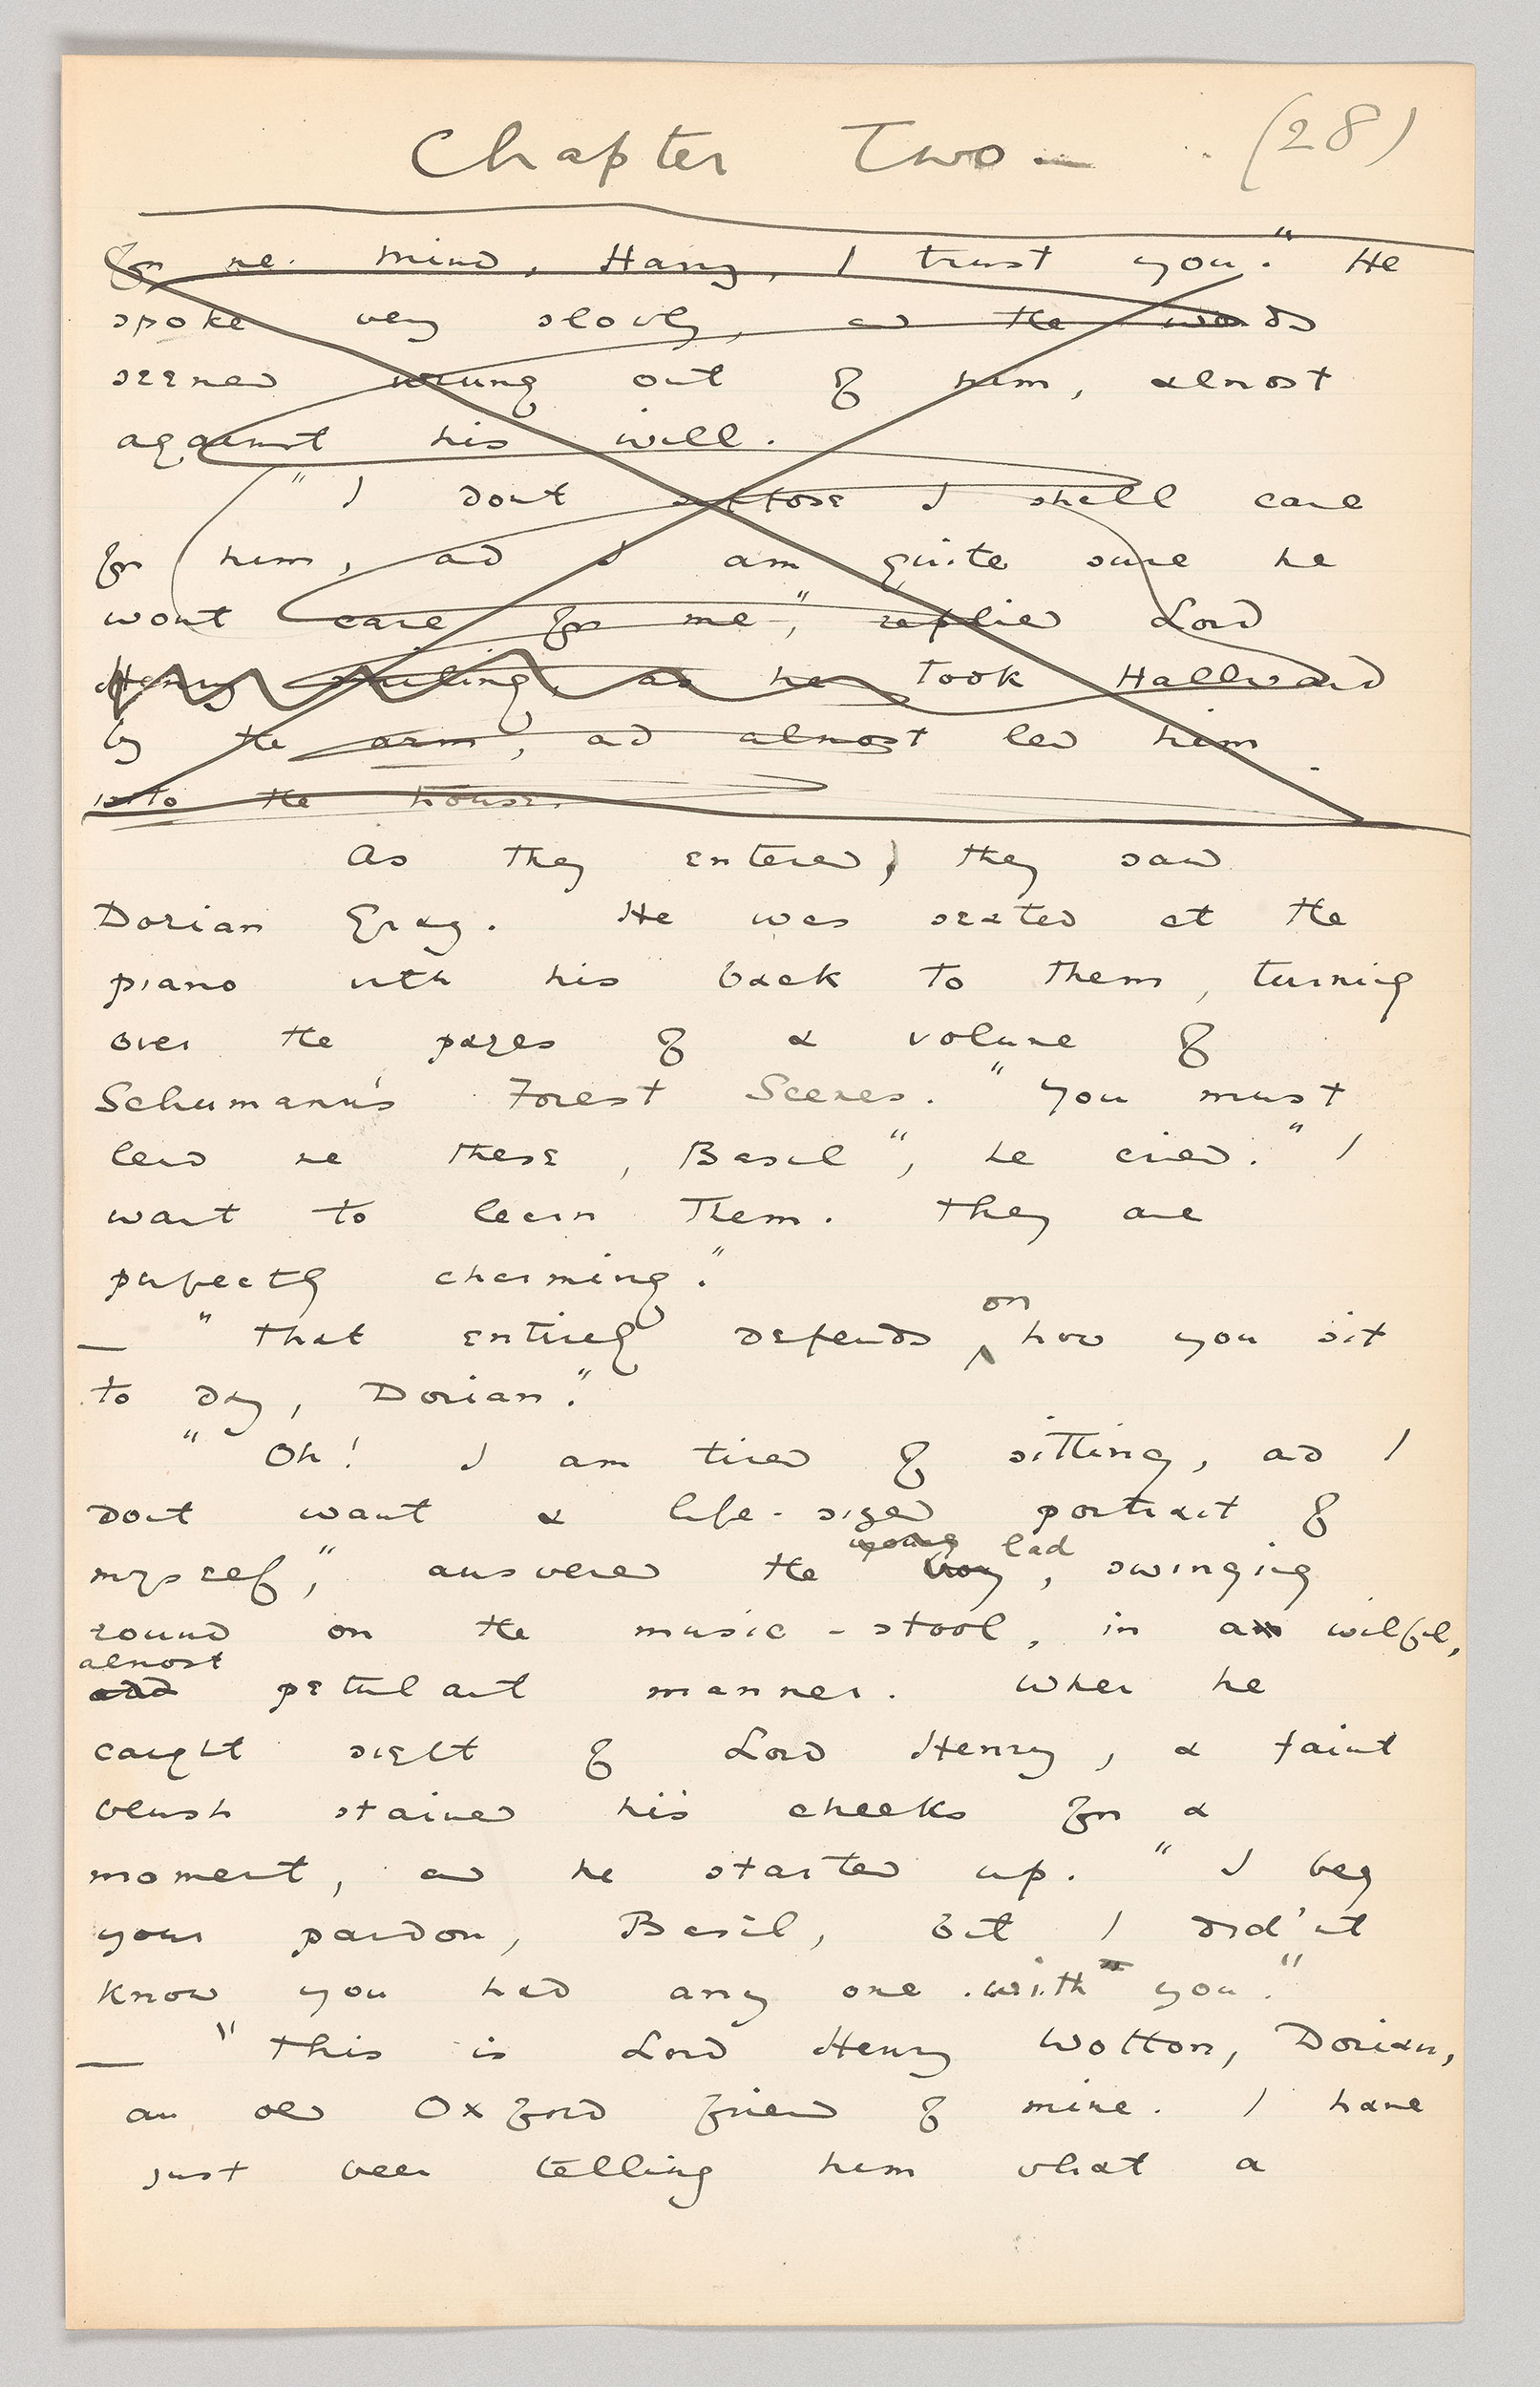 Chapter Two — (28)
for me. Mind, Harry, I trust you." He
spoke very slowly, and the words
seemed wrung out of him, almost
against his will.
"I dont suppose I shall care
for him, and I am quite sure he
wont care for me," replied Lord
Henry smiling, as he took Hallward
by the arm, and almost led him
into the house.
As they entered, they saw
Dorian Gray. He was seated at the
piano with his back to them, turning
over the pages of a volume of
Schumann's Forest Scenes. "You must
lend me these, Basil", he cried. "I
want to learn them. They are
perfectly charming."
— "That entirely depends on how you sit
to day, Dorian."
"Oh! I am tired of sitting, and I
dont want a life-sized portrait of
young lad
myself," answered the boy, swinging
round on the music-stool, in a wilful,
almost
and petulant manner. When he
caught sight of Lord Henry, a faint
blush stained his cheeks for a
moment, and he started up. "I beg
your pardon, Basil, but I did'nt
know you had any one with you."
— "This is Lord Henry Wotton, Dorian,
an old Oxford friend of mine. I have
just been telling him what a